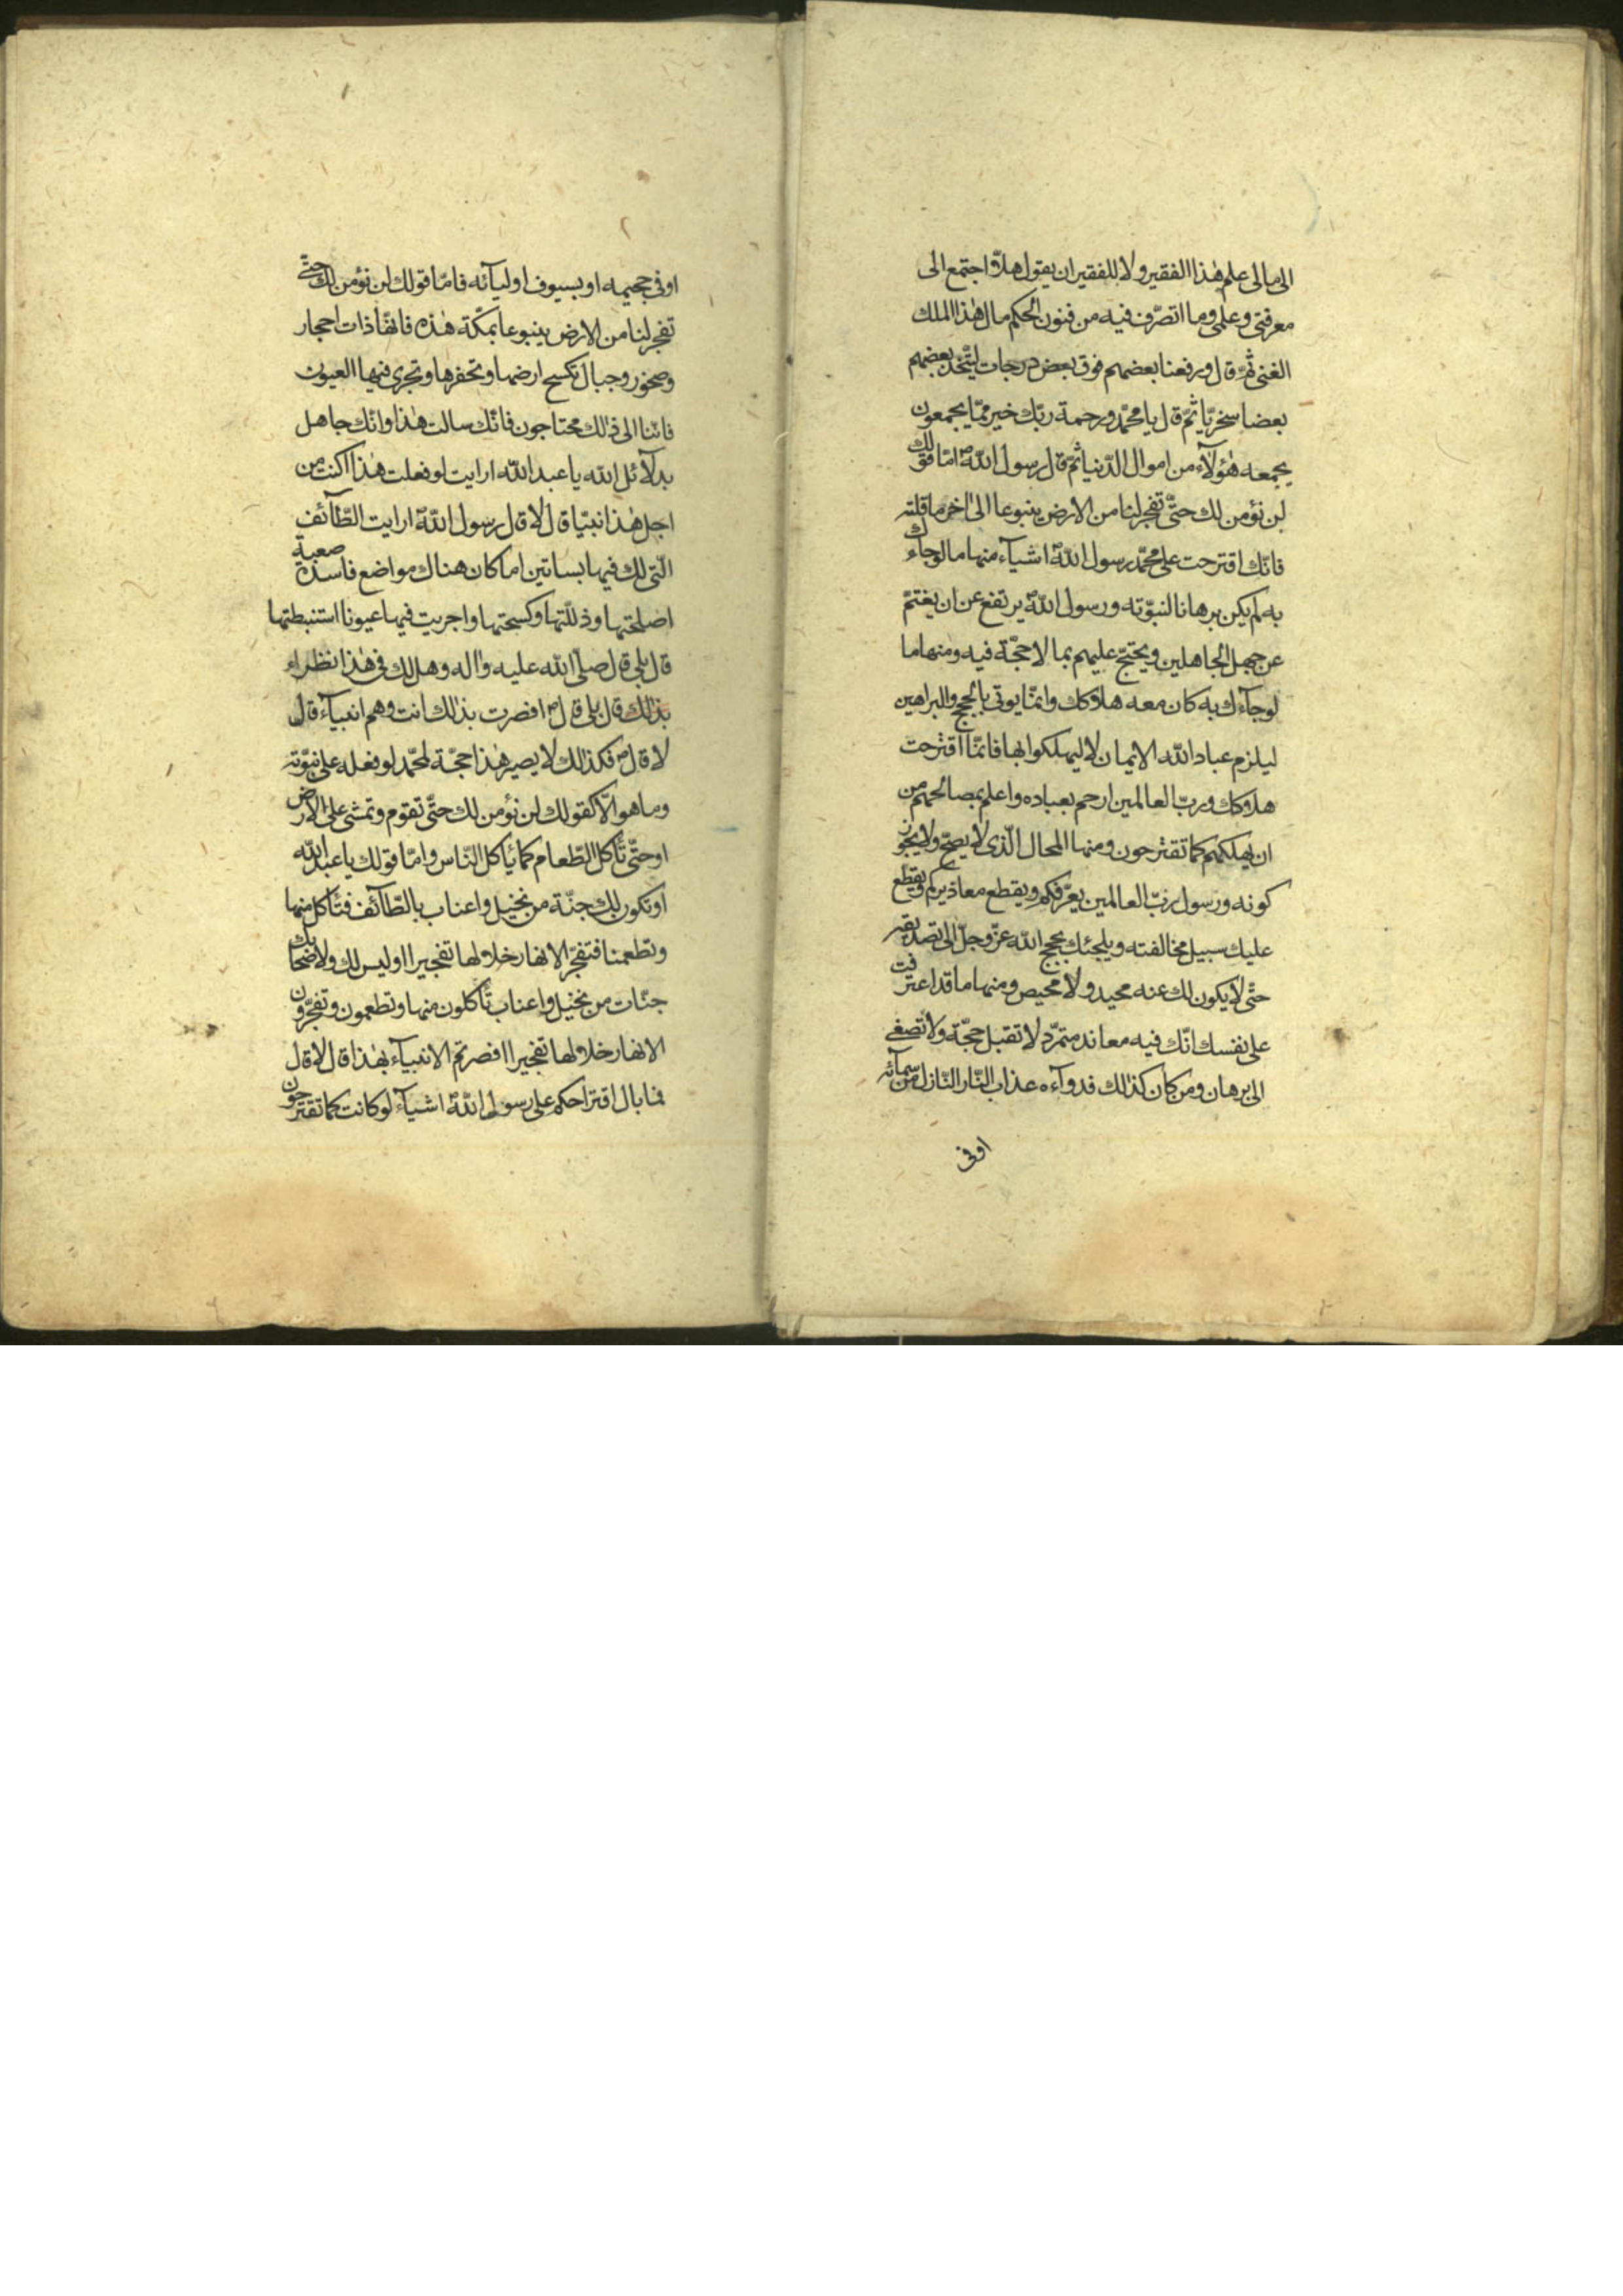 الى مالى علم هذا الفقير ولا للفقير ان يقول هلّا اجتمع الى
معرفتى وعلمى وما اتصرّف فيه من فنون الحكم مال هذا الملك
الغنى ثمّ قال ورفعنا بعضهم فوق بعض درجات ليتّخذ بعضهم
بعضا سخريّا ثمّ قال يا محمّد ورحمة ربّك خير ممّا يجمعون
يجمعه هؤلآء من اموال الدّنيا ثمّ قال رسول اللّه امّا قولك
لن نؤمن لك حتّى تفجر لنا من الارض ينبوعا الى اخر ما قلته
فانّك اقترحت على محمّد رسول اللّه اشيآء منها ما لو جاءك
به لم يكن برهانا لنبوّته ورسول اللّه يرتفع عن ان يغتنم
عن جهل الجاهلين ويحتجّ عليهم بما لا حجّة فيه ومنها ما
لو جآءك به كان معه هلاكك وانمّا يوتى بالحجج والبراهين
ليلزم عباد اللّه الايمان لا ليهلكوا بها فانمّا اقترحت
هلاكك وربّ العالمين ارحم بعباده واعلم بمصالحهم من
ان يهلكهم كما تقترحون ومنها المحال الّذى لا يصحّ ولا يجوز
كونه ورسول ربّ العالمين يعرّفكم ويقطع معاذيركم ويقطع
عليك سبيل مخالفته ويلجئك بحجج اللّه عزّ وجلّ الى تصديقه
حتّى لا يكون لك عنه محيد ولا محيص ومنها ما قد اعترفت
على نفسك انّك فيه معاند متمرّد لا تقبل حجّة ولا تصغى
الى برهان ومن كان كذلك فدوآءه عذاب النّار النّازل من سمآئه
اوفى
اوفى جحيمه او بسيوف اوليآئه فامّا قولك لن نؤمن لك حتّى
تفجر لنا من الارض ينبوعا بمكّة هذه فانهّا ذات احجار
وصخور وجبال تكسح ارضها وتحفرها وتجرى فيها العيون
فانّنا الى ذلك محتاجون فانّك سالت هذا وانّك جاهل
بدلآئل اللّه يا عبد اللّه ارايت لو فعلت هذا اكنت من
اجل هذا نبيّا قال لا قال رسول اللّه ارايت الطّآئف
الّتى لك فيها بساتين اما كان هناك مواضع فاسدة صعبة
اصلحتها وذللّتها وكسحتها واجريت فيها عيونا استنبطتها
قال بلى قال صلى اللّه عليه واله وهل لك فى هذا نظراء
بذلك قال بلى قال افصرت بذلك انت وهم انبيآء قال
لا قال فكذلك لا يصير هذا حجّة لمحمّد لو فعله على نبوّته
وما هو الّا كقولك لن نؤمن لك حتّى تقوم وتمشى على الارض
او حتّى تأكل الطّعام كما يأكل النّاس وامّا قولك يا عبد اللّه
او تكون لك جنّة من نخيل واعناب بالطّآئف فتأكل منها
وتطعمنا فتفجّر الانهار خلالها تفجيرا اوليس لك ولاصحابك
جنّات من نخيل واعناب تأكلون منها وتطعمون وتفجّرون
الانهار خلالها تفجيرا افصرتم الانبيآء بهذا قال لا قال
فما بال اقتراحكم على رسول اللّه اشيآء لو كانت كما تقترحون